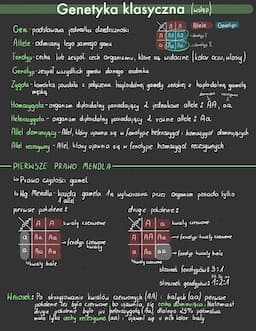 Genetyka klasyczna (wstęp)
Gen - podstawowa jednostka dziedziczności
Allele - odmiany tego samego genu
Fenotyp - cecha (lub zespół cech organizmu, które są widoczne (kolor oczu, włosy)
Genotyp - zespół wszystkich genów danego osobnika
Allele
Genotyp
Zygota - komórka powstała z połączenia haploidalnej gamety żeńskiej z haploidalną gametą męską
Homozygota - organizm diploidalny posiadający 2 jednakowe allele: AA, aa
Heterozygota - organizm diploidalny posiadający 2 różne allele: Aa
Allel dominujący - Allel, który ujawnia się w fenotypie heterozygot i homozygot dominujących
Allel recesywny - Allel, który ujawnia się w fenotypie homozygot recesywnych
PIERWSZE PRAWO MENDLA
Prawo czystości gamet
Wg Mendla - każda gameta
wytwarzana przez organizm posiada tylko
1 allel
pierwsze pokolenie:
drugie pokolenie:
A A
kwiaty czerwone
a Aa Aa
a Aa Aa
fenotyp czerwone kwiaty
kwiaty białe
A a
kwiaty czerwone
A AA Aa
a Aa aa
fenotyp: kwiaty czerwone
fenotyp: kwiaty białe
stosunek fenotypów 3:1
stosunek genotypów 1:2:1
Wniosek: Po skrzyżowaniu kwiatów czerwonych (AA) i białych (aa) pierwsze